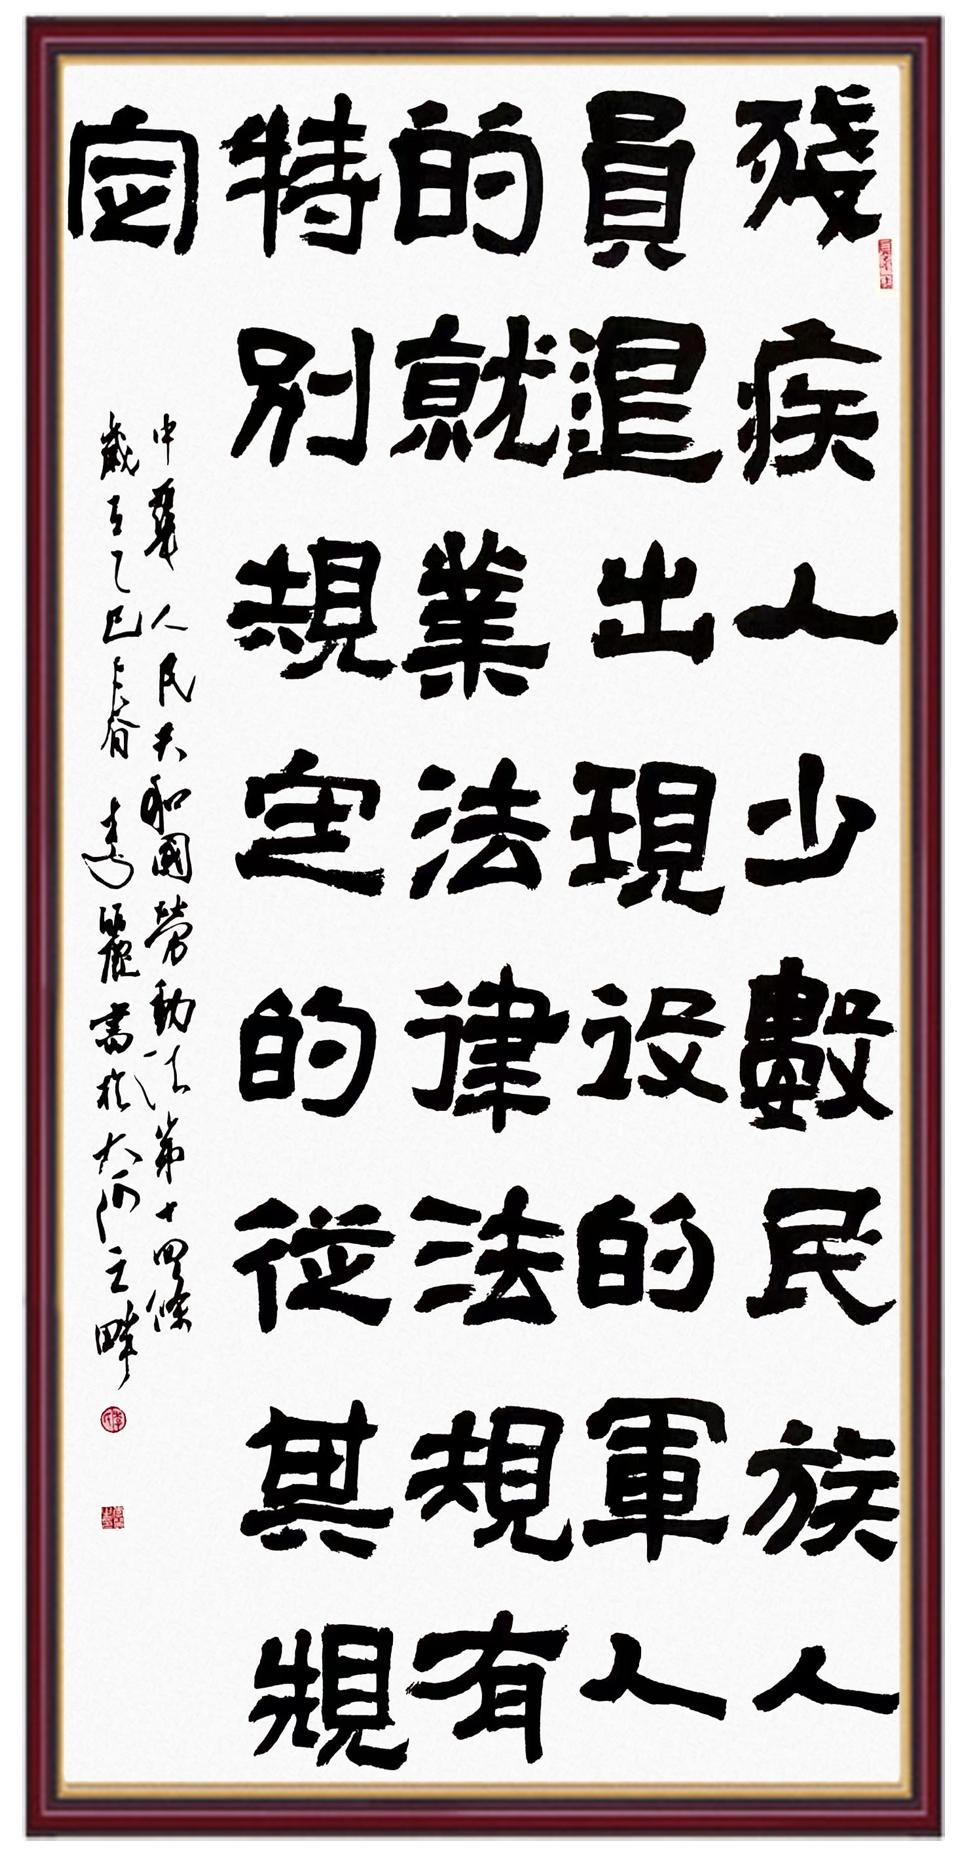 殘疾人少數民族人
員退出現役的軍人
的就業法律法規有
特別規定的從其規
定
中華人民共和國勞動法第十四條
歲在乙巳春李麗書於大河之畔